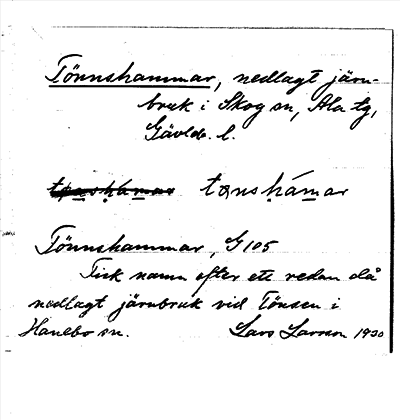 Tönnshammar, nedlagt järn-
bruk i Skog sn, Ala tg,
Gävleb. l.
tọnsḥámar
Tönnshammar, G 105
Fick namn efter ett redan då
nedlagt järnbruk vid Tönsen i
Hanebo sn. Lars Larsson 1930